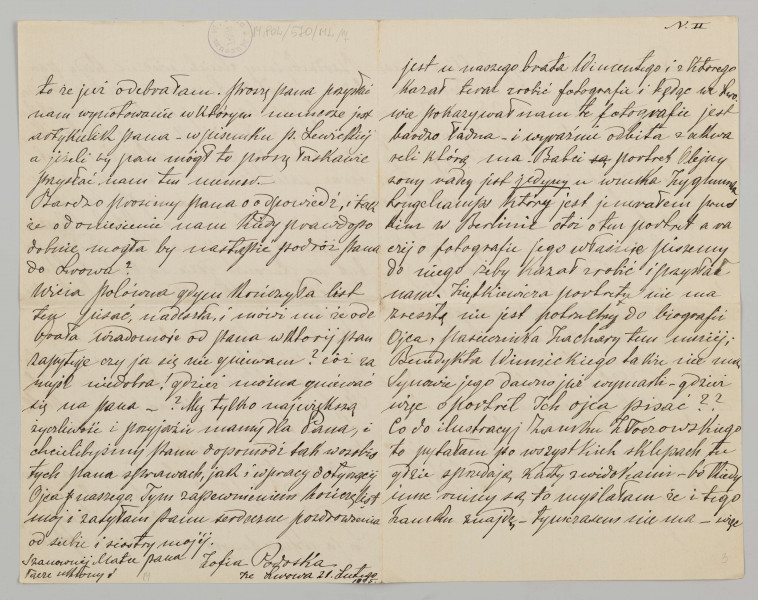 N. II
M.POL/570/ML/2
to że już odebrałam. Proszę pana przysłać
nam wynotowanie w którym numerze jest
artykułek pana – w pisemku p. Lewickiej
a jeżeli by pan mógł to proszę łaskawie
przysłać nam ten numer.
Bardzo prosimy pana o odpowiedź, i także
o doniesienie nam kiedy prawdopo
dobnie mogła by nastąpić podróż pana
do Lwowa?
Wicia Polówna gdym kończyła list
ten pisać, nadeszła, i mówi mi że ode
brała wiadomość od pana w której pan
zapytuje czy ja się nie gniewam? cóż za
myśl niedobra! gdzież można gniewać
się na pana – ? My tylko największą
życzliwość i przyjaźń mamy dla Pana, i
chcielibyśmy panu dopomódz tak w osobis
tych pana sprawach, jak i w pracy dotyczącej
Ojca naszego. Tym zapewnieniem kończę list
mój i zasyłam panu serdeczne pozdrowienia
od siebie i siostry mojej.
Szanownej Matce pana
Zofia Podoska
ze Lwowa 21. Lutego
jest u naszego brata Wincentego i z którego
kazał teraz zrobić fotografię i będąc we Lwo
wie pokazywał nam tę fotografię jest
bardzo ładna – i wyraźnie odbita z akwa
reli którą ma. Babci są portret Olejny
jest jedyny u wnuka Zygmunta
Longchampsa który jest jenerałem prus
kim w Berlinie otóż o ten portret a ra
czej o fotografię jego właśnie piszemy
do niego żeby kazał zrobić i przysłać
nam. Ziętkiewicza portretu nie ma
zresztą nie jest potrzebny do biografii
Ojca, pasiecznika Zachary tem mniej;
Benedykta Winnickiego także nie ma
Synowie jego dawno już wymarli – gdzież
więc o portret Ich ojca pisać??
Co do ilustracyj Zamku Złoczowskiego
to pytałam po wszystkich sklepach tu
gdzie sprzedają karty z widokami – bo kiedy
inne są to myślałam że i tego
zamku znajdę, – tymczasem nie ma – więc